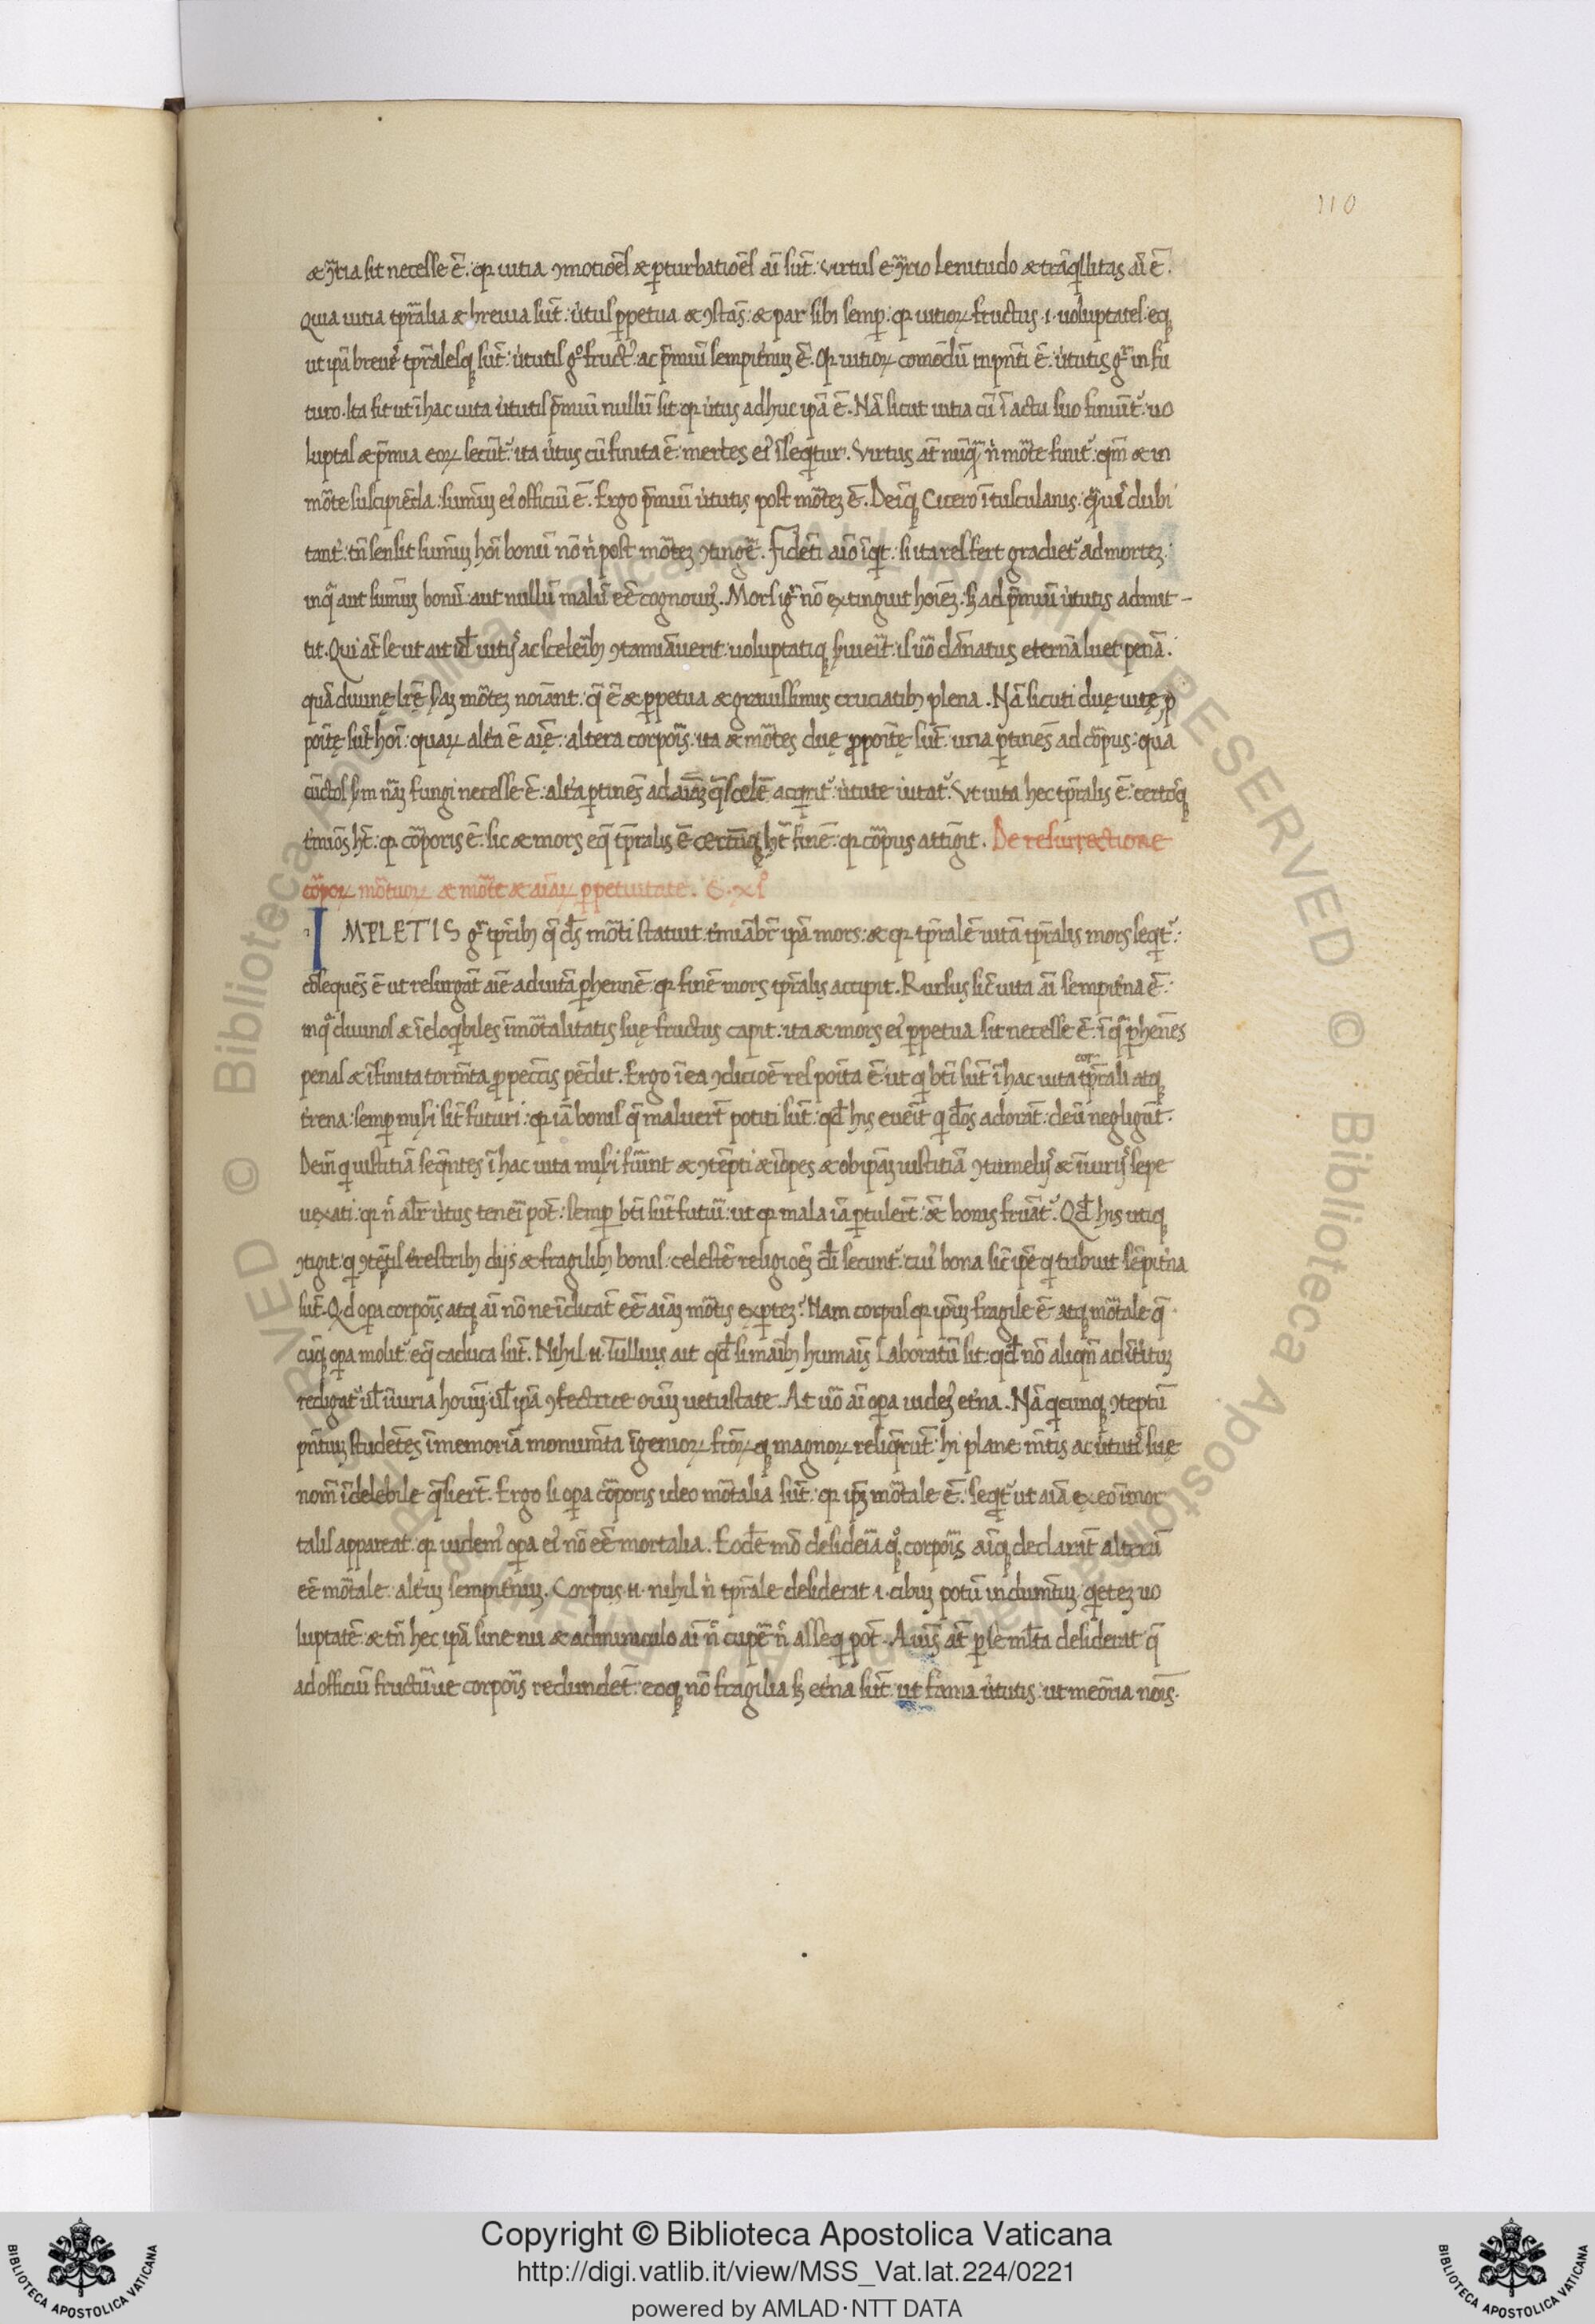 110
& ꝯ̃tia sit necesse ē. qꝛ uitia ꝯmotiões & ꝑturbatiões aĩ sũt. virtus e ꝯ̃rio lenitudo & trãq̃llitas aĩ ē.
Quia uitia tp̃ralia & breuia sũt. ùtus ꝑpetua & ꝯstãs. & par sibi semꝑ. qꝛ uitioꝝ fructus .i. uoluptates. eqꝫ
ut ip̃a breues tp̃ralesqꝫ sũt. ùtutis gͦ fruct9 ac p̃miũ sempit'nuꝫ ē. Qꝛ uitioꝝ comodũ in pñti ē. ùtutis gͥ in fu
turo. Ita fit ut ĩ hac uita ùtutis p̃miũ nullũ sit. qꝛ ùtus adhuc ip̃a ē. Nã sicut uitia cũ ĩ actu suo finiũt᷑. uo
luptas & p̃mia eoꝝ secũt᷑. ita ùtus cũ finita ē. merces ei9 ĩseqͥtur. Virtus at̃ nũqͣ ñ mõte finit᷑. qm̃ & in
mõte suscipiẽda. sum̃uꝫ ei9 officiũ ē. Ergo p̃miũ ùtutis post mõteꝫ ē. Deĩqꝫ Cicero ĩ tusculanis. qͣuis dubi
tant'. tñ sensit sum̃uꝫ hoĩ bonũ nõ ñ post mõteꝫ ꝯtingẽ. Fidẽti aĩo ĩqͥt. si ita res fert gradiet᷑ ad morteꝫ.
inqͣ aut sum̃uꝫ bonũ. aut nullũ malũ eē cognouim9. Mors igͥ nõ extinguit hoĩeꝫ. sꝫ ad p̃miũ ùtutis admit-
tit. Qui at̃ se ut ait id̃ uitijs ac sceleribꝫ ꝯtamiãuerit. uoluptatiqꝫ suieĩt. is uõ dãnatus eternã luet penã.
quã diuinę lr̃ę scd̃aꝫ mõteꝫ noĩant. q̃ ē & ꝑpetua & grauissimis cruciatibꝫ plena. Nã sicuti duę uitę ꝓ
poĩtę sũt hoĩ. quaꝝ alt'a ē aĩę. altera corpoĩs. ita & mõtes duę ꝓpoĩtę sũt. una ꝑtinẽs ad cõpus. qua
cũctos sm̃ nãꝫ fungi necesse ē. alt'a ꝑtinẽs ad aĩaꝫ q̃ scelẽ acqͥrit᷑. ùtute uitat᷑. Vt uita hec tp̃ralis ē. certosqꝫ
t'mĩos ht̃. qꝛ cõporis ē. sic & mors eq̃ tp̃ralis ē certũqꝫ ht̃ finē. qꝛ cõpus attigit. De resurrectione
cõpoꝝ mõtuoꝝ & mõte & aĩaꝝ ꝑpetuitate. C. xI
IMPLETIS gͥ tp̃ribꝫ q̃ d̃s mõti statuit. t'mĩabĩt ip̃a mors. & qꝛ tp̃ralẽ uitã tp̃ralis mors seqͥt᷑.
cõsequẽs ē ut resurgãt aĩe ad uitã ꝑhennẽ. qꝛ finẽ mors tp̃ralis accipit. Rursus sic̃ uita aĩ sempit'na ē.
inqͣ diuinos & ĩeloqͥbiles ĩmõtalitatis suę fructus capit. ita & mors ei9 ꝑpetua sit necesse ē. ĩ qͣ ꝑhenẽs
penas & ĩfinita torm̃ta ꝓ peccĩs pẽdit. Ergo ĩ ea ꝯdicioẽ res poĩta ē. ut qͥ bt̃i sũt ĩ hac uita tp̃rali atqꝫ
cor
t'rena. semꝑ mis'i sĩt futuri. qꝛ iã bonis q̃ maluert̃ potiti sũt. qd̃ his eueĩt qͥ d̃os adorãt. deũ negligũt.
Deĩn qͥ iustitiã seq̃ntes ĩ hac uita mis'i fũint & ꝯtẽpti & ĩopes & ob ip̃aꝫ iustitiã ꝯtumelijs & ĩiurijs sępe
uexati. qꝛ ñ alr̃ ùtus teneĩ pot̃. semꝑ bt̃i sũt futuĩ. ut qꝛ mala iã ꝑtulert̃. & bonis fruãt᷑. Qd̃ his utiqꝫ
ꝯtigit. qͥ ꝯtẽptis t'restribꝫ dijs & fragilibꝫ bonis. celestẽ religioẽꝫ d̃i secunt᷑. cui9 bona sic̃ ip̃e qͥ tribuit sẽpit'na
sũt. Qd oꝑa corpoĩs atqꝫ aĩ nõ ne ĩdicãt eē aĩaꝫ mõtis exꝑteꝫ? Nam corpus qꝛ ip̃uꝫ fragile ē atqꝫ mõtale q̃
cũqꝫ oꝑa molit᷑. eq̃ caduca sũt. Nihil .n. Tullius ait qd̃ si manibꝫ humaĩs laboratũ sit. qd̃ nõ aliqñ ad ĩt'ituꝫ
redigat᷑. ul' ĩiuria hoĩuꝫ. ul' ip̃a ꝯfectrice oĩuꝫ uetustate. At uõ aĩ oꝑa uidem9 et'na. Nã qͥcunqꝫ ꝯteptũ
pñtiuꝫ studẽtes ĩ memoriã monum̃ta ĩgenioꝝ fcõꝝqꝫ magnoꝝ reliq̃rũt. hi plane m̃tis ac ùtutis suę
nom̃ ĩdelebile q̃siert̃. Ergo si oꝑa cõporis ideo mõtalia sũt. qꝛ ip̃ꝫ mõtale ē. seqͥt᷑ ut aĩa ex eo ĩmor
talis appareat. qꝛ uidem9 oꝑa ei9 nõ eē mortalia. Eodẽ mõ desideĩa qͦqꝫ corpoĩs aĩqꝫ declarãt alterũ
eē mõtale. alt'uꝫ sempit'nuꝫ. Corpus .n. nihil ñ tp̃rale desiderat .i. cibuꝫ potũ indum̃tuꝫ qͥeteꝫ uo
luptatẽ. & tñ hec ip̃a sine nu & adminiculo aĩ ñ cupẽ ñ asseqͥ pot̃. Aĩus at̃ ꝑ se ml̃ta desiderat q̃
ad officiũ fructũue corpoĩs redundẽt. eoqꝫ nõ fragilia sꝫ et'na sũt. ut fama ùtutis. ut memõria noĩs.
Copyright © Biblioteca Apostolica Vaticana
http://digi.vatlib.it/view/MSS_Vat.lat.224/0221
powered by AMLAD·NTT DATA